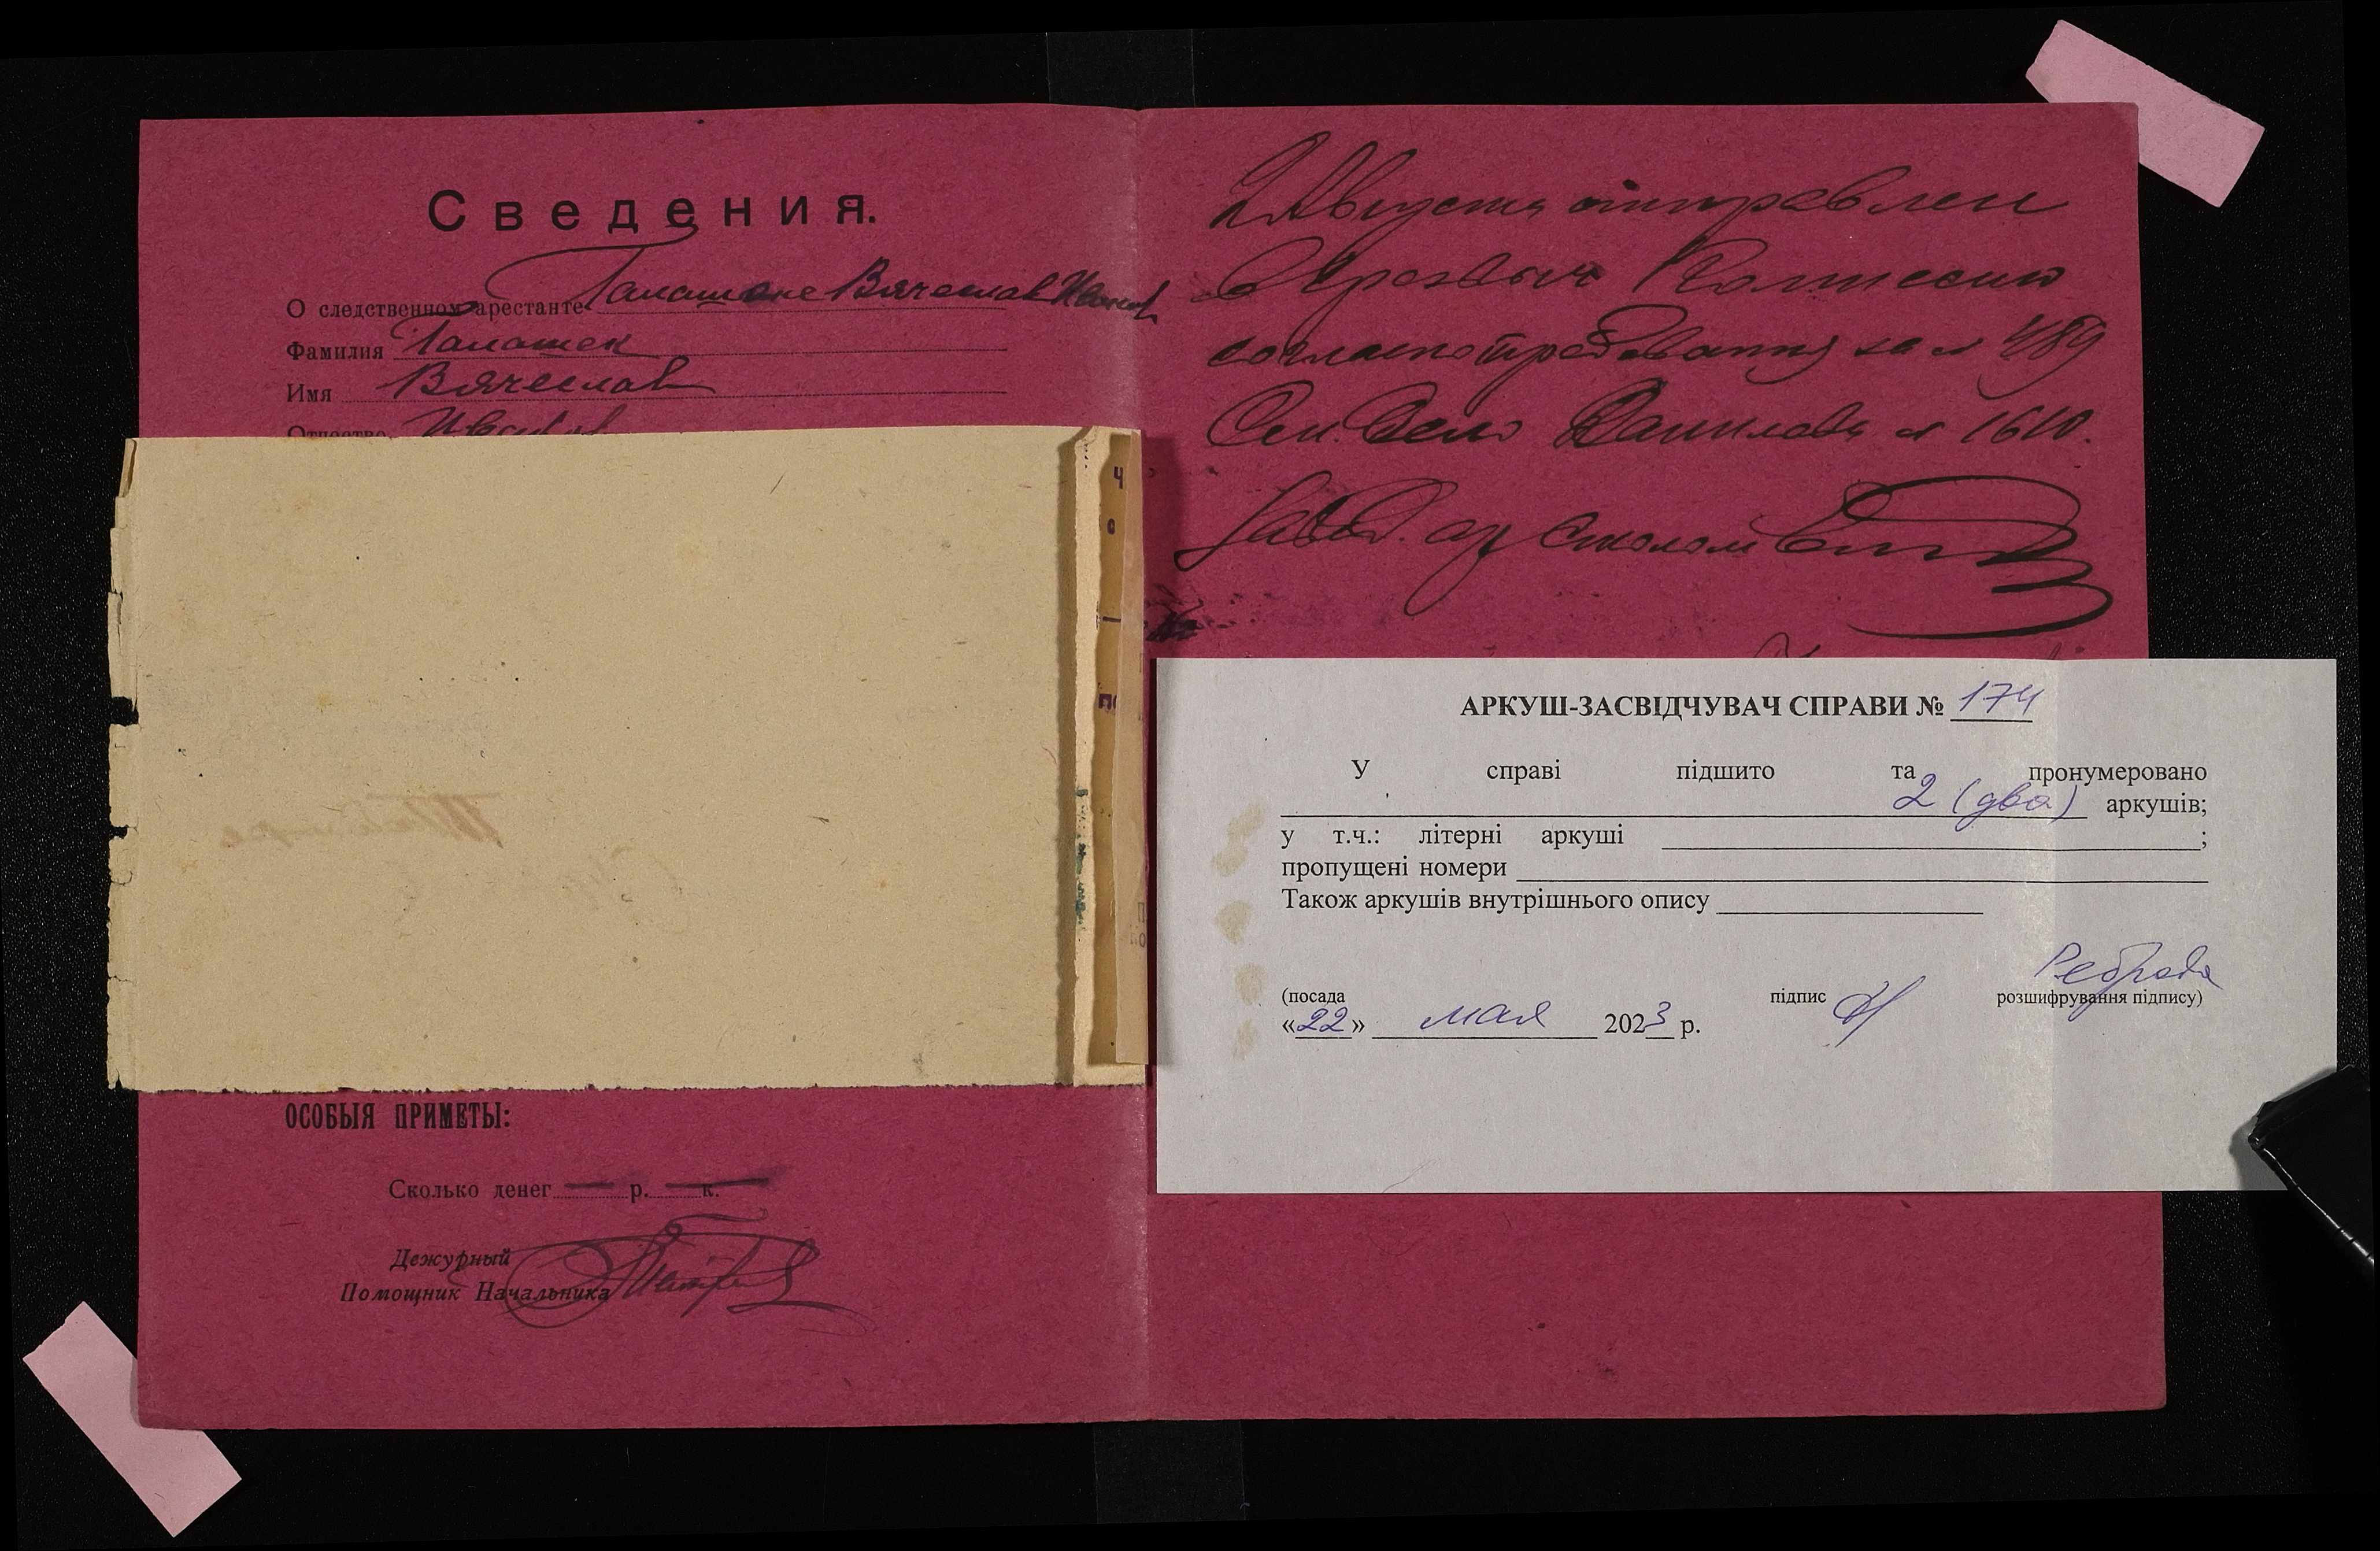 Сведения.
О следственном арестанте Галашеке Вячеслав Иванов
Фамилия Галашек
Имя Вячеслав
Отчество Иванов
ОСОБЫЯ ПРИМЕТЫ:
Сколько денег — р. — к.
Дежурный
Помощник Начальника
2 Августа отправлен
в Чрезвыч Комиссию
согласно требования за № 489
См. дело Данилова № 1610.
Завед. ар столом
АРКУШ-ЗАСВІДЧУВАЧ СПРАВИ № 174
У справі підшито та пронумеровано
2 (два) аркушів;
у т.ч.: літерні аркуші ;
пропущені номери
Також аркушів внутрішнього опису
(посада підпис розшифрування підпису)
«22» мая 2023 р.